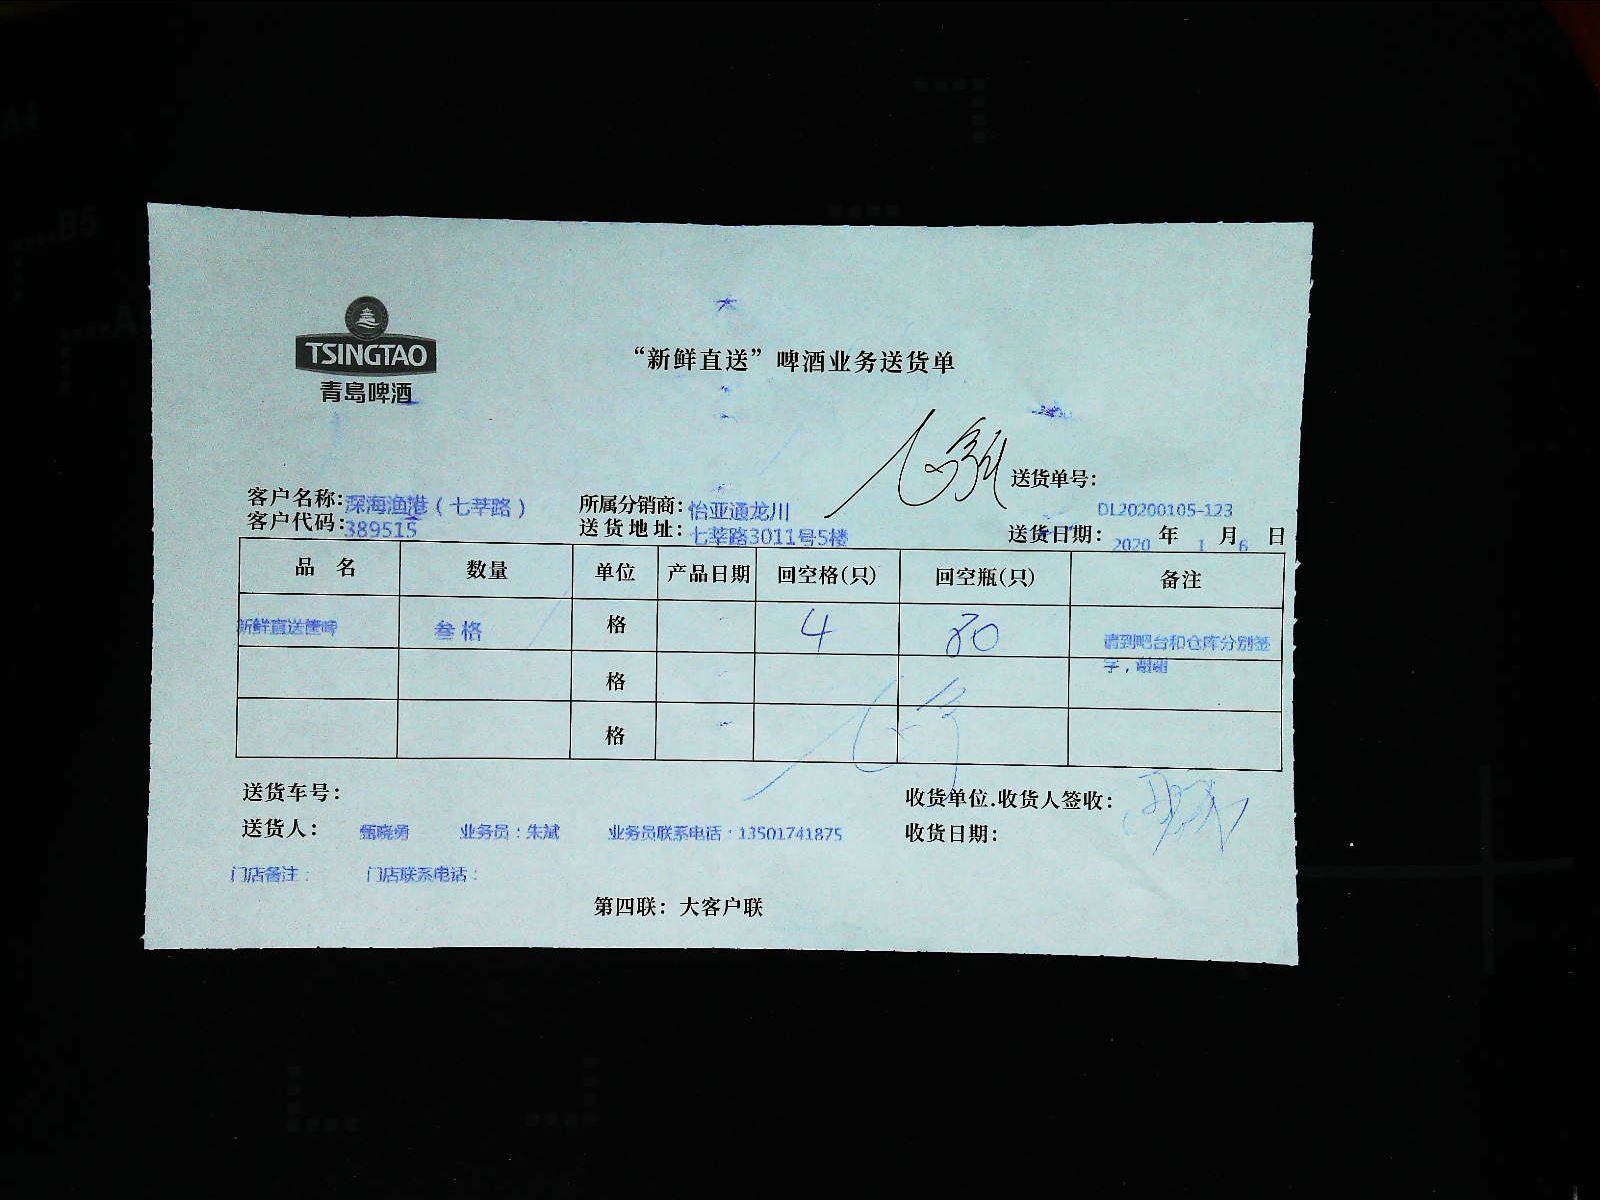 TSINGTAO
青岛啤酒
“新鲜直送”啤酒业务送货单
送货单号：
DL20200105-123
客户名称：深海渔港（七莘路） 所属分销商：怡亚通龙川
客户代码：389515 送货地址：七莘路3011号5楼 送货日期：2020 年 1 月 6 日
品 名 数量 单位 产品日期 回空格(只) 回空瓶(只) 备注
新鲜直送筐啤 叁格 格 4 80 请到吧台和仓库分别签
字，谢谢
格
格
送货车号： 收货单位.收货人签收：
送货人： 甄晓勇 业务员：朱斌 业务员联系电话：13501741875 收货日期：
门店备注： 门店联系电话：
第四联：大客户联